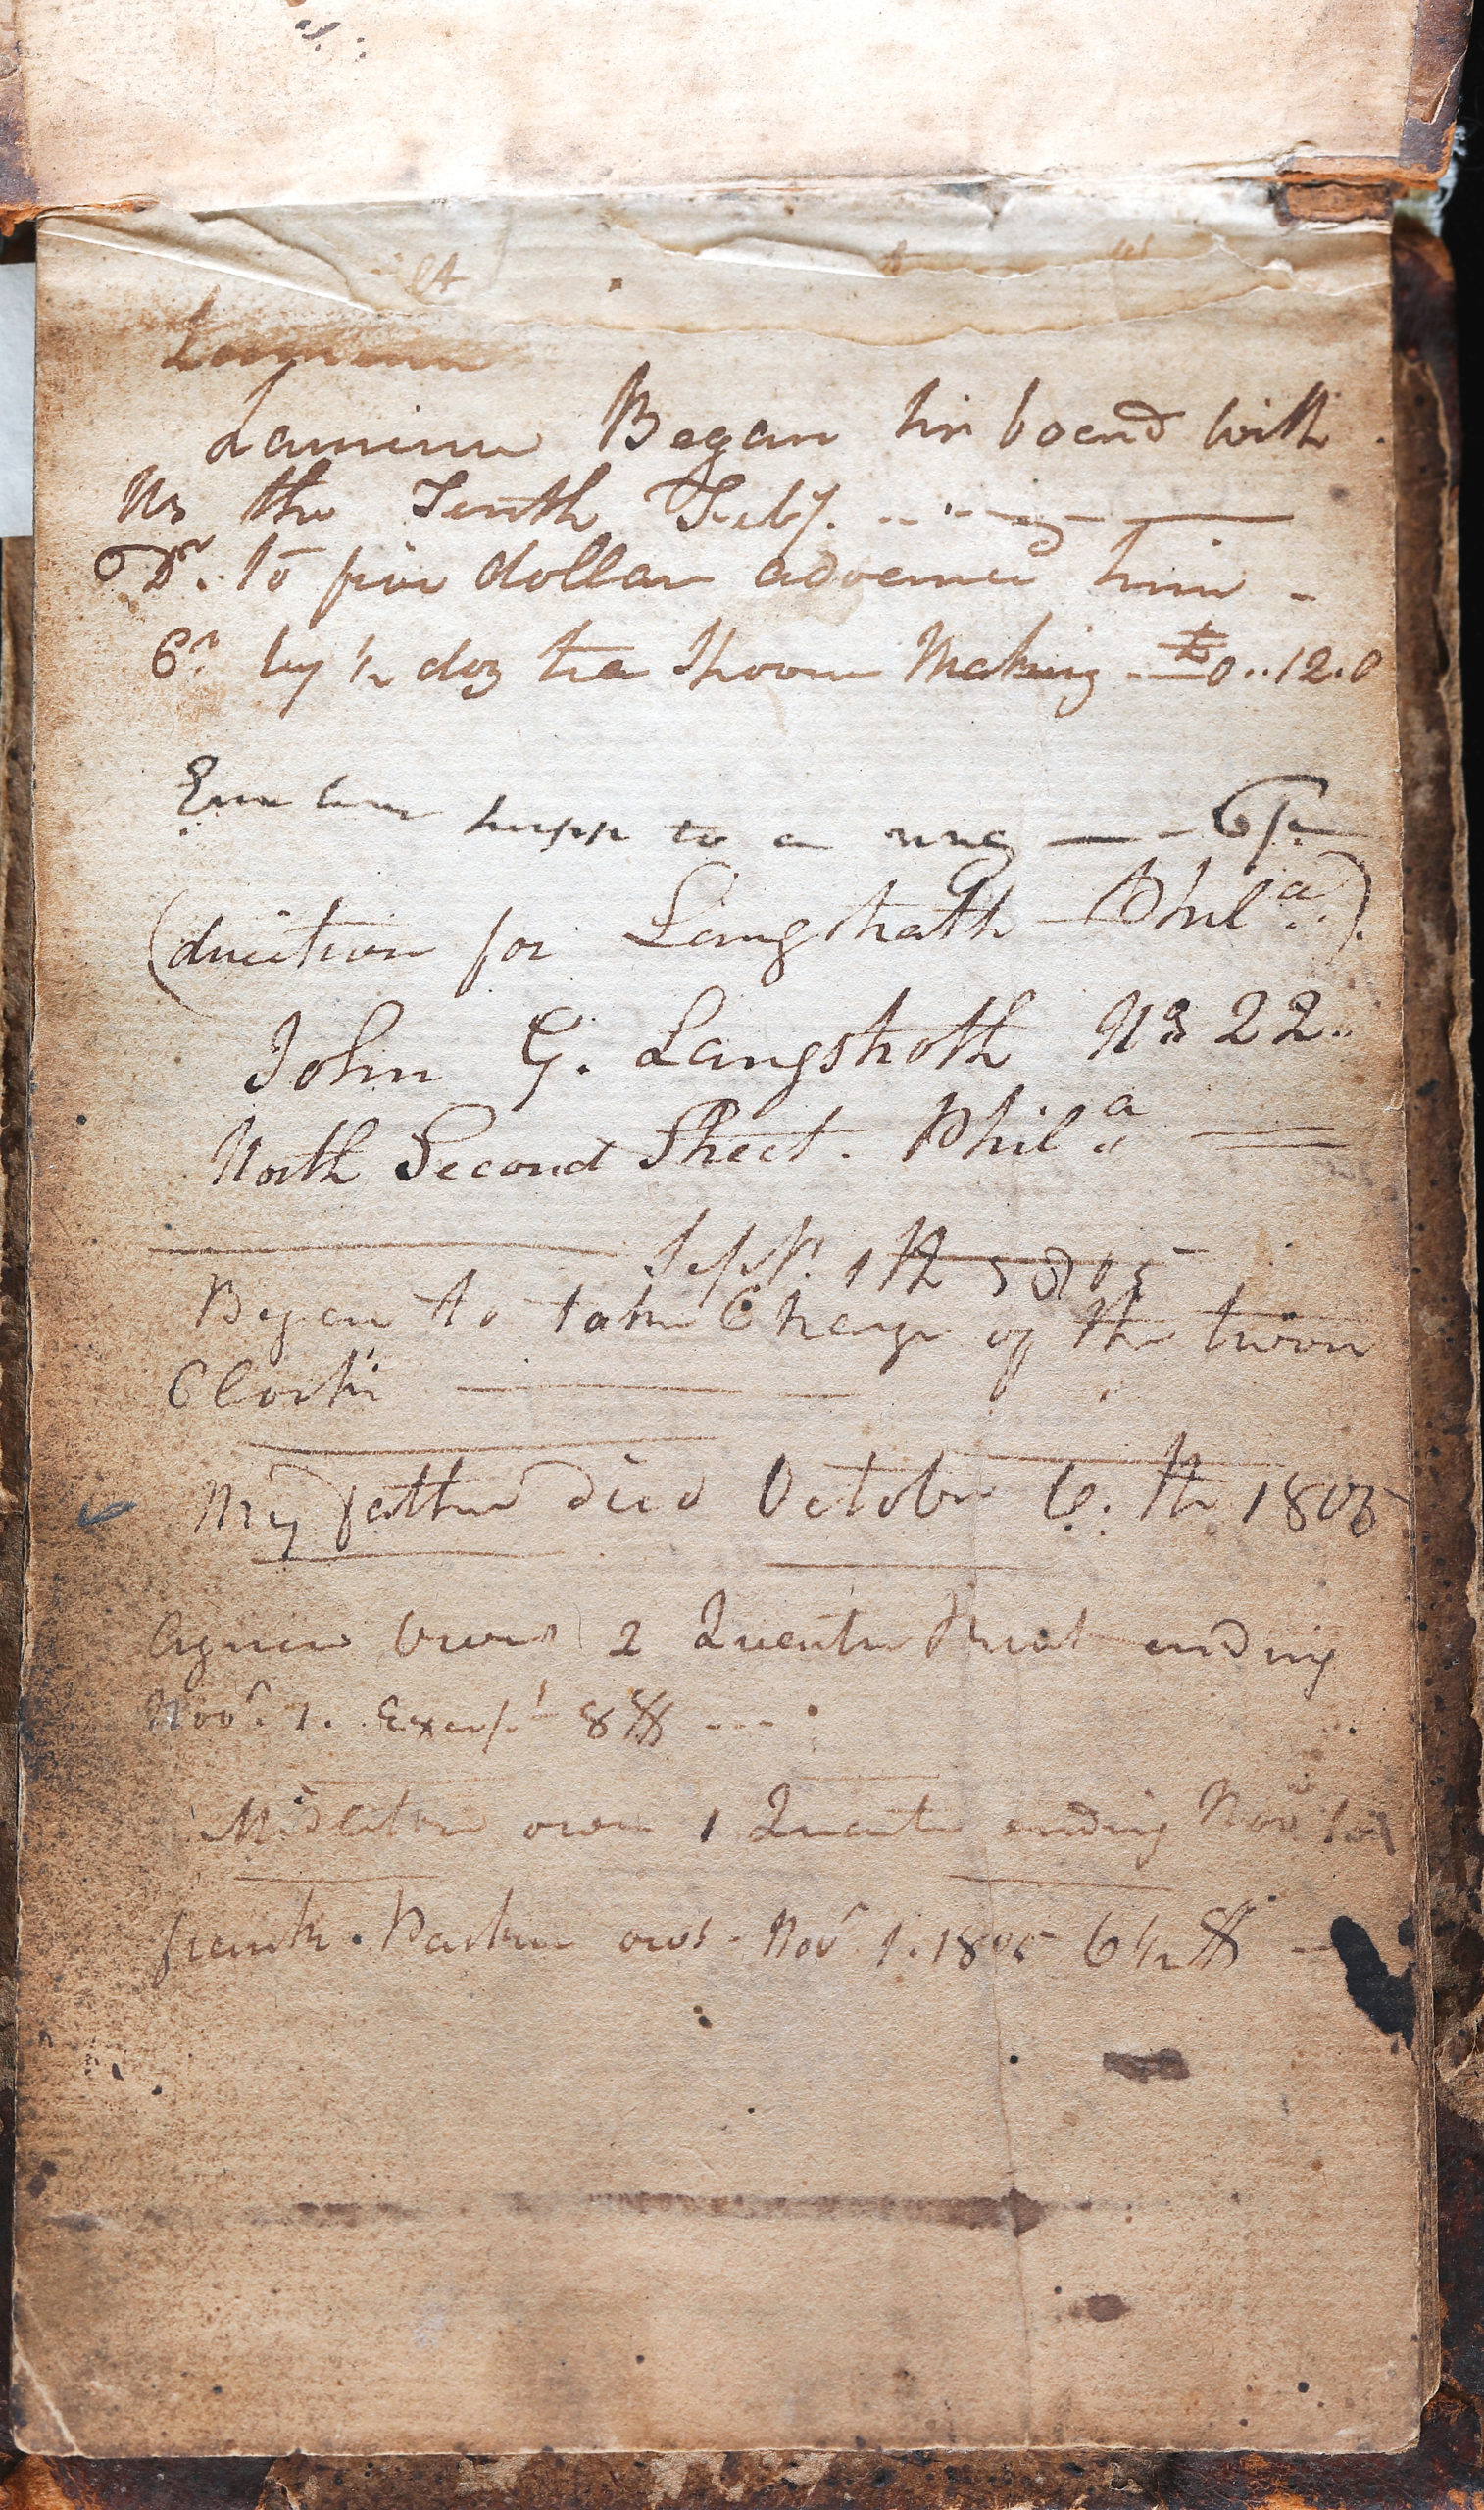 Began his board with
Us the Tenth Feby.
Dr. to five dollars advance him -
Cr by ½ doz tea Spoons Making 0..12.0
to a ring 6/
(direction for Langstroth Phila.)
John G. Langstroth No 22..
North Second Street. Phila
Sept. 1th 1805
Began to take Charge of the town
Clock
My father died October 6.th 1805
2 Quarter Rent ending
Novr. 1. Except 8$
owes 1 Quarter ending Novr 1
frank. Parker owes. Novr 1. 1805 6½$